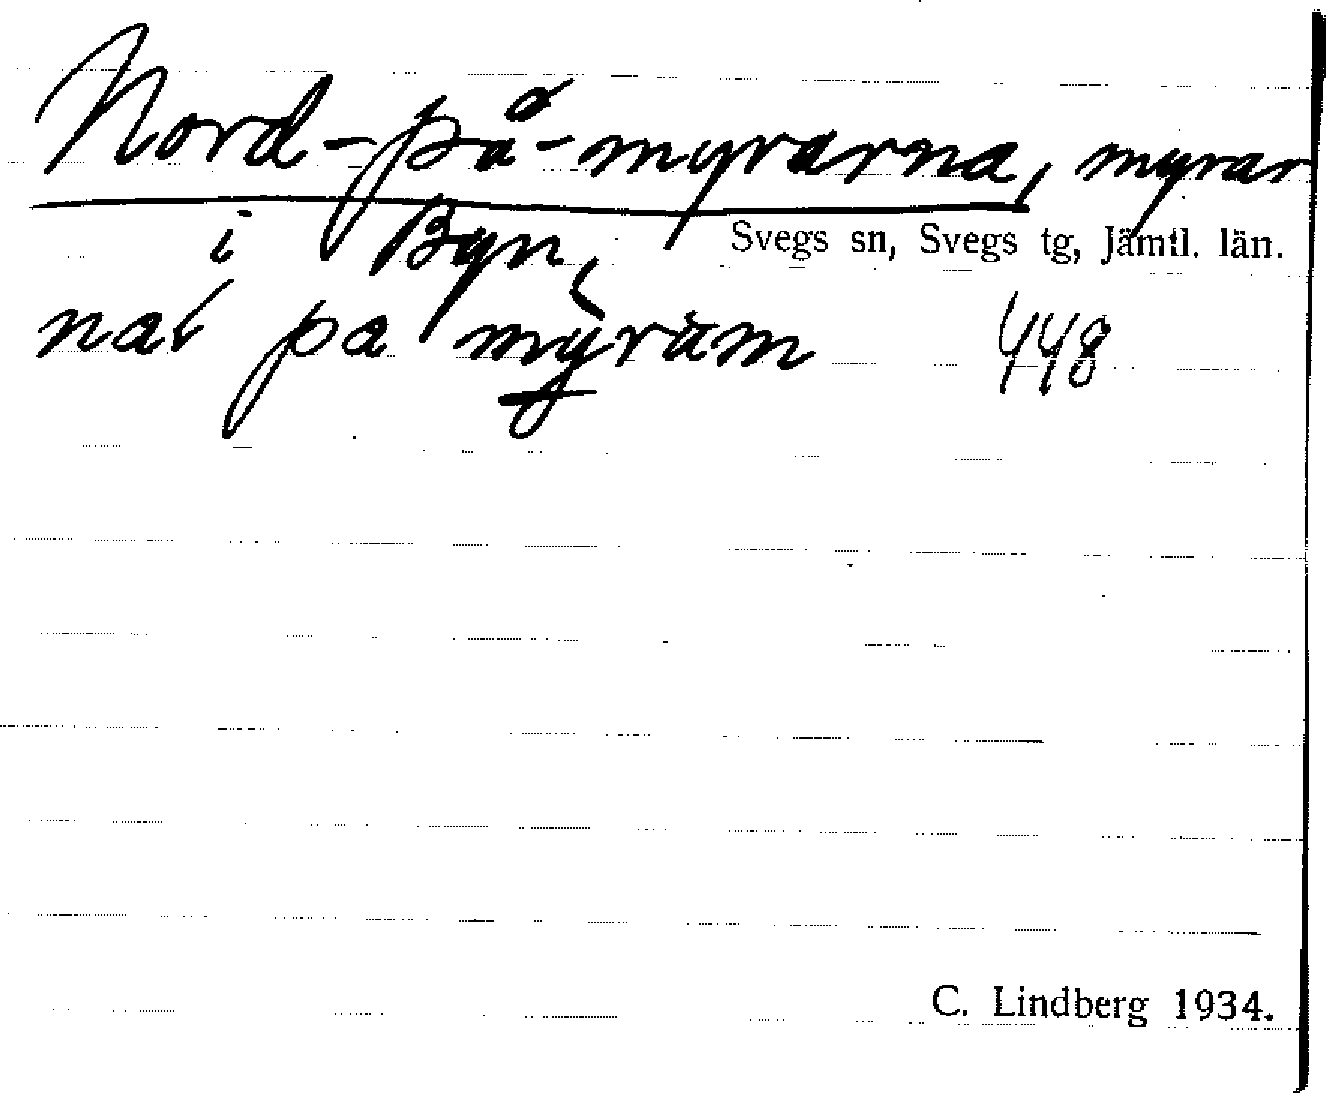 Nord-på-myrarna, myrar
i Byn, Svegs sn, Svegs tg, Jämtl. län.
pa 448
C. Lindberg 1934.